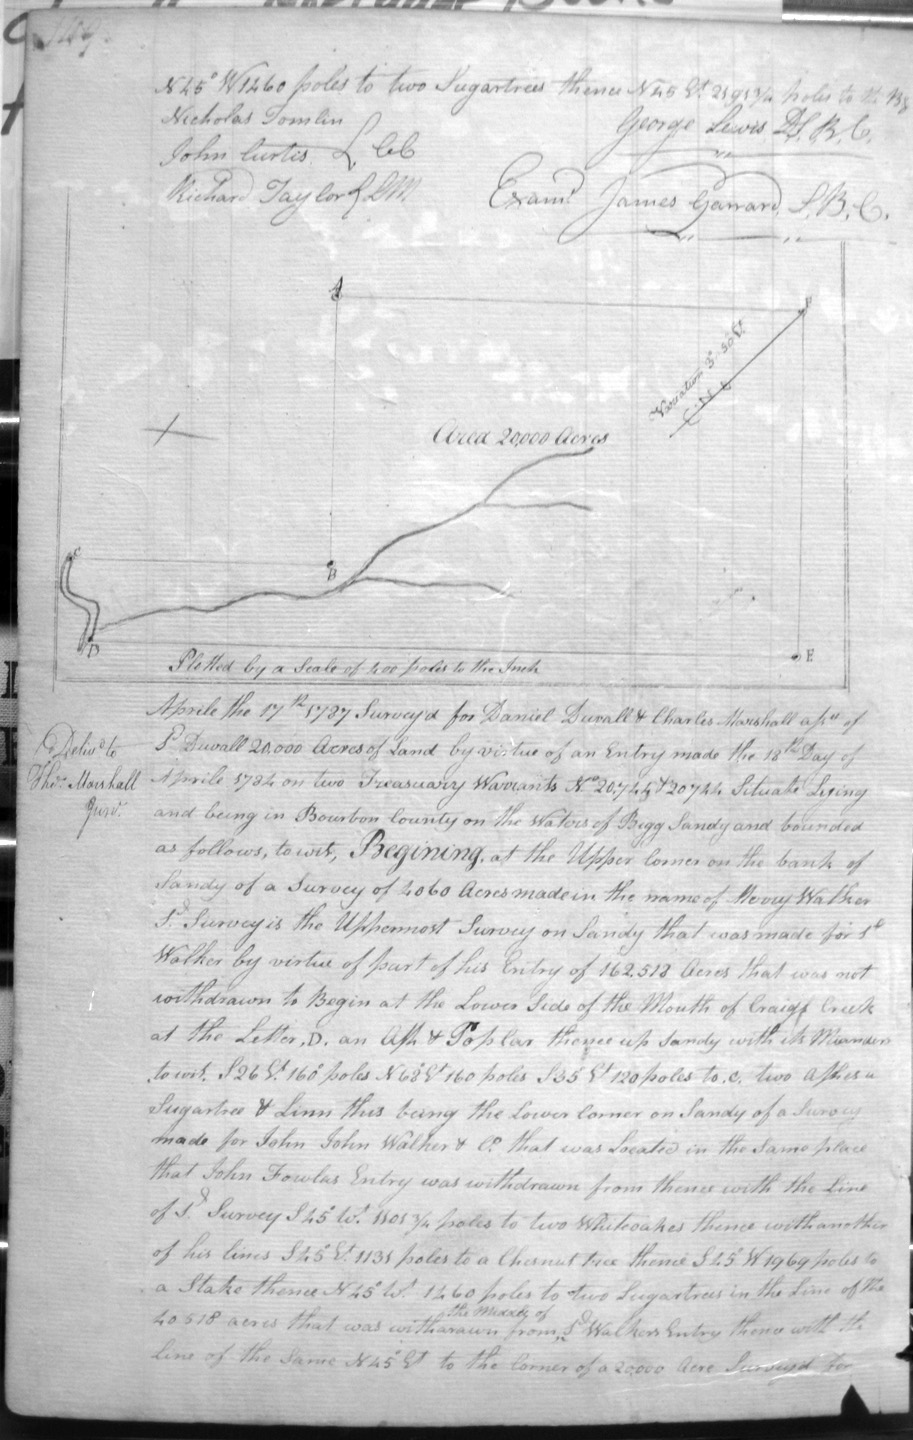 N 45° W 1460 poles to two Sugartrees thence N 45 Et. 2191 3/4 poles to the Bg
Nicholas Tomlin
John Curtis } CC
Richard Taylor } DM.
George Lewis D.S.B.C.
Examd. James Garrard S.B.C.
A
F
Variation 3° 30' Et.
N
Area 20,000 Acres
C
B
D
E
Plotted by a Scale of 400 poles to the Inch
Aprile the 17th 1787 Survey'd for Daniel Duvall & Charles Marshall of
Sd Duvall 20,000 Acres of Land by virtue of an Entry made the 18th Day of
Aprile 1784 on two Treasuary Warrants No. 20,745 & 20744 Situate Lying
and being in Bourbon County on the Waters of Bigg Sandy and bounded
as follows, to wit, Begining, at the Upper Corner on the bank of
Sandy of a Survey of 4060 Acres made in the name of Merry Walker
Sd. Survey is the Uppermost Survey on Sandy that was made for Sd
Walker by virtue of part of his Entry of 162,518 Acres that was not
withdrawn to Begin at the Lower Side of the Mouth of Craigs Creek
at the Letter, D. an Ash & Poplar thence up Sandy with its Meanders
to wit. S 26 Et. 160 poles N 68 Et 160 poles S 35 Et 120 poles to, C. two Ashes a
Sugartree & Linn this being the Lower Corner on Sandy of a Survey
made for John John Walker & Co. that was Located in the Same place
that John Fowlas Entry was withdrawn from thence with the Line
of Sd. Survey S 45° Wt. 1101 3/4 poles to two Whiteoakes thence with another
of his lines S 45° Et. 1131 poles to a Chesnut tree thence S 45° W 1969 poles to
a Stake thence N 45° Wt. 1460 poles to two Sugartrees in the Line of the
40518 acres that was withdrawn from the Middle of Sd Walkers Entry thence with the
line of the Same N 45° Et to the Corner of a 20,000 Acre Survey'd for
Delivd. to
Thos. Marshall
Junr.